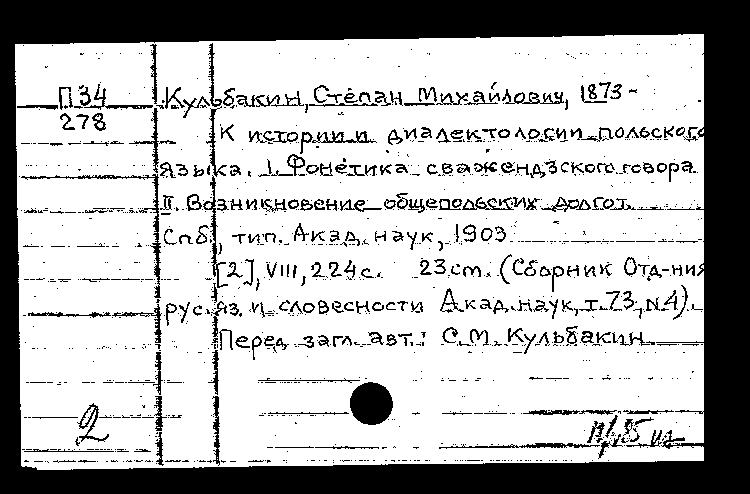 П34
278
Кульбакин, Степан Михайлович, 1873-
К истории и диалектологии польского
языка. I. Фонетика сважендзского говора
II. Возникновение общепольских долгот.
Спб., тип. Акад. наук, 1903
[2], VIII, 224 с. 23 см. (Сборник Отд-ния
рус. яз. и словесности Акад. наук, т. 73, N4).
Перед загл. авт.: С.М. Кульбакин
2